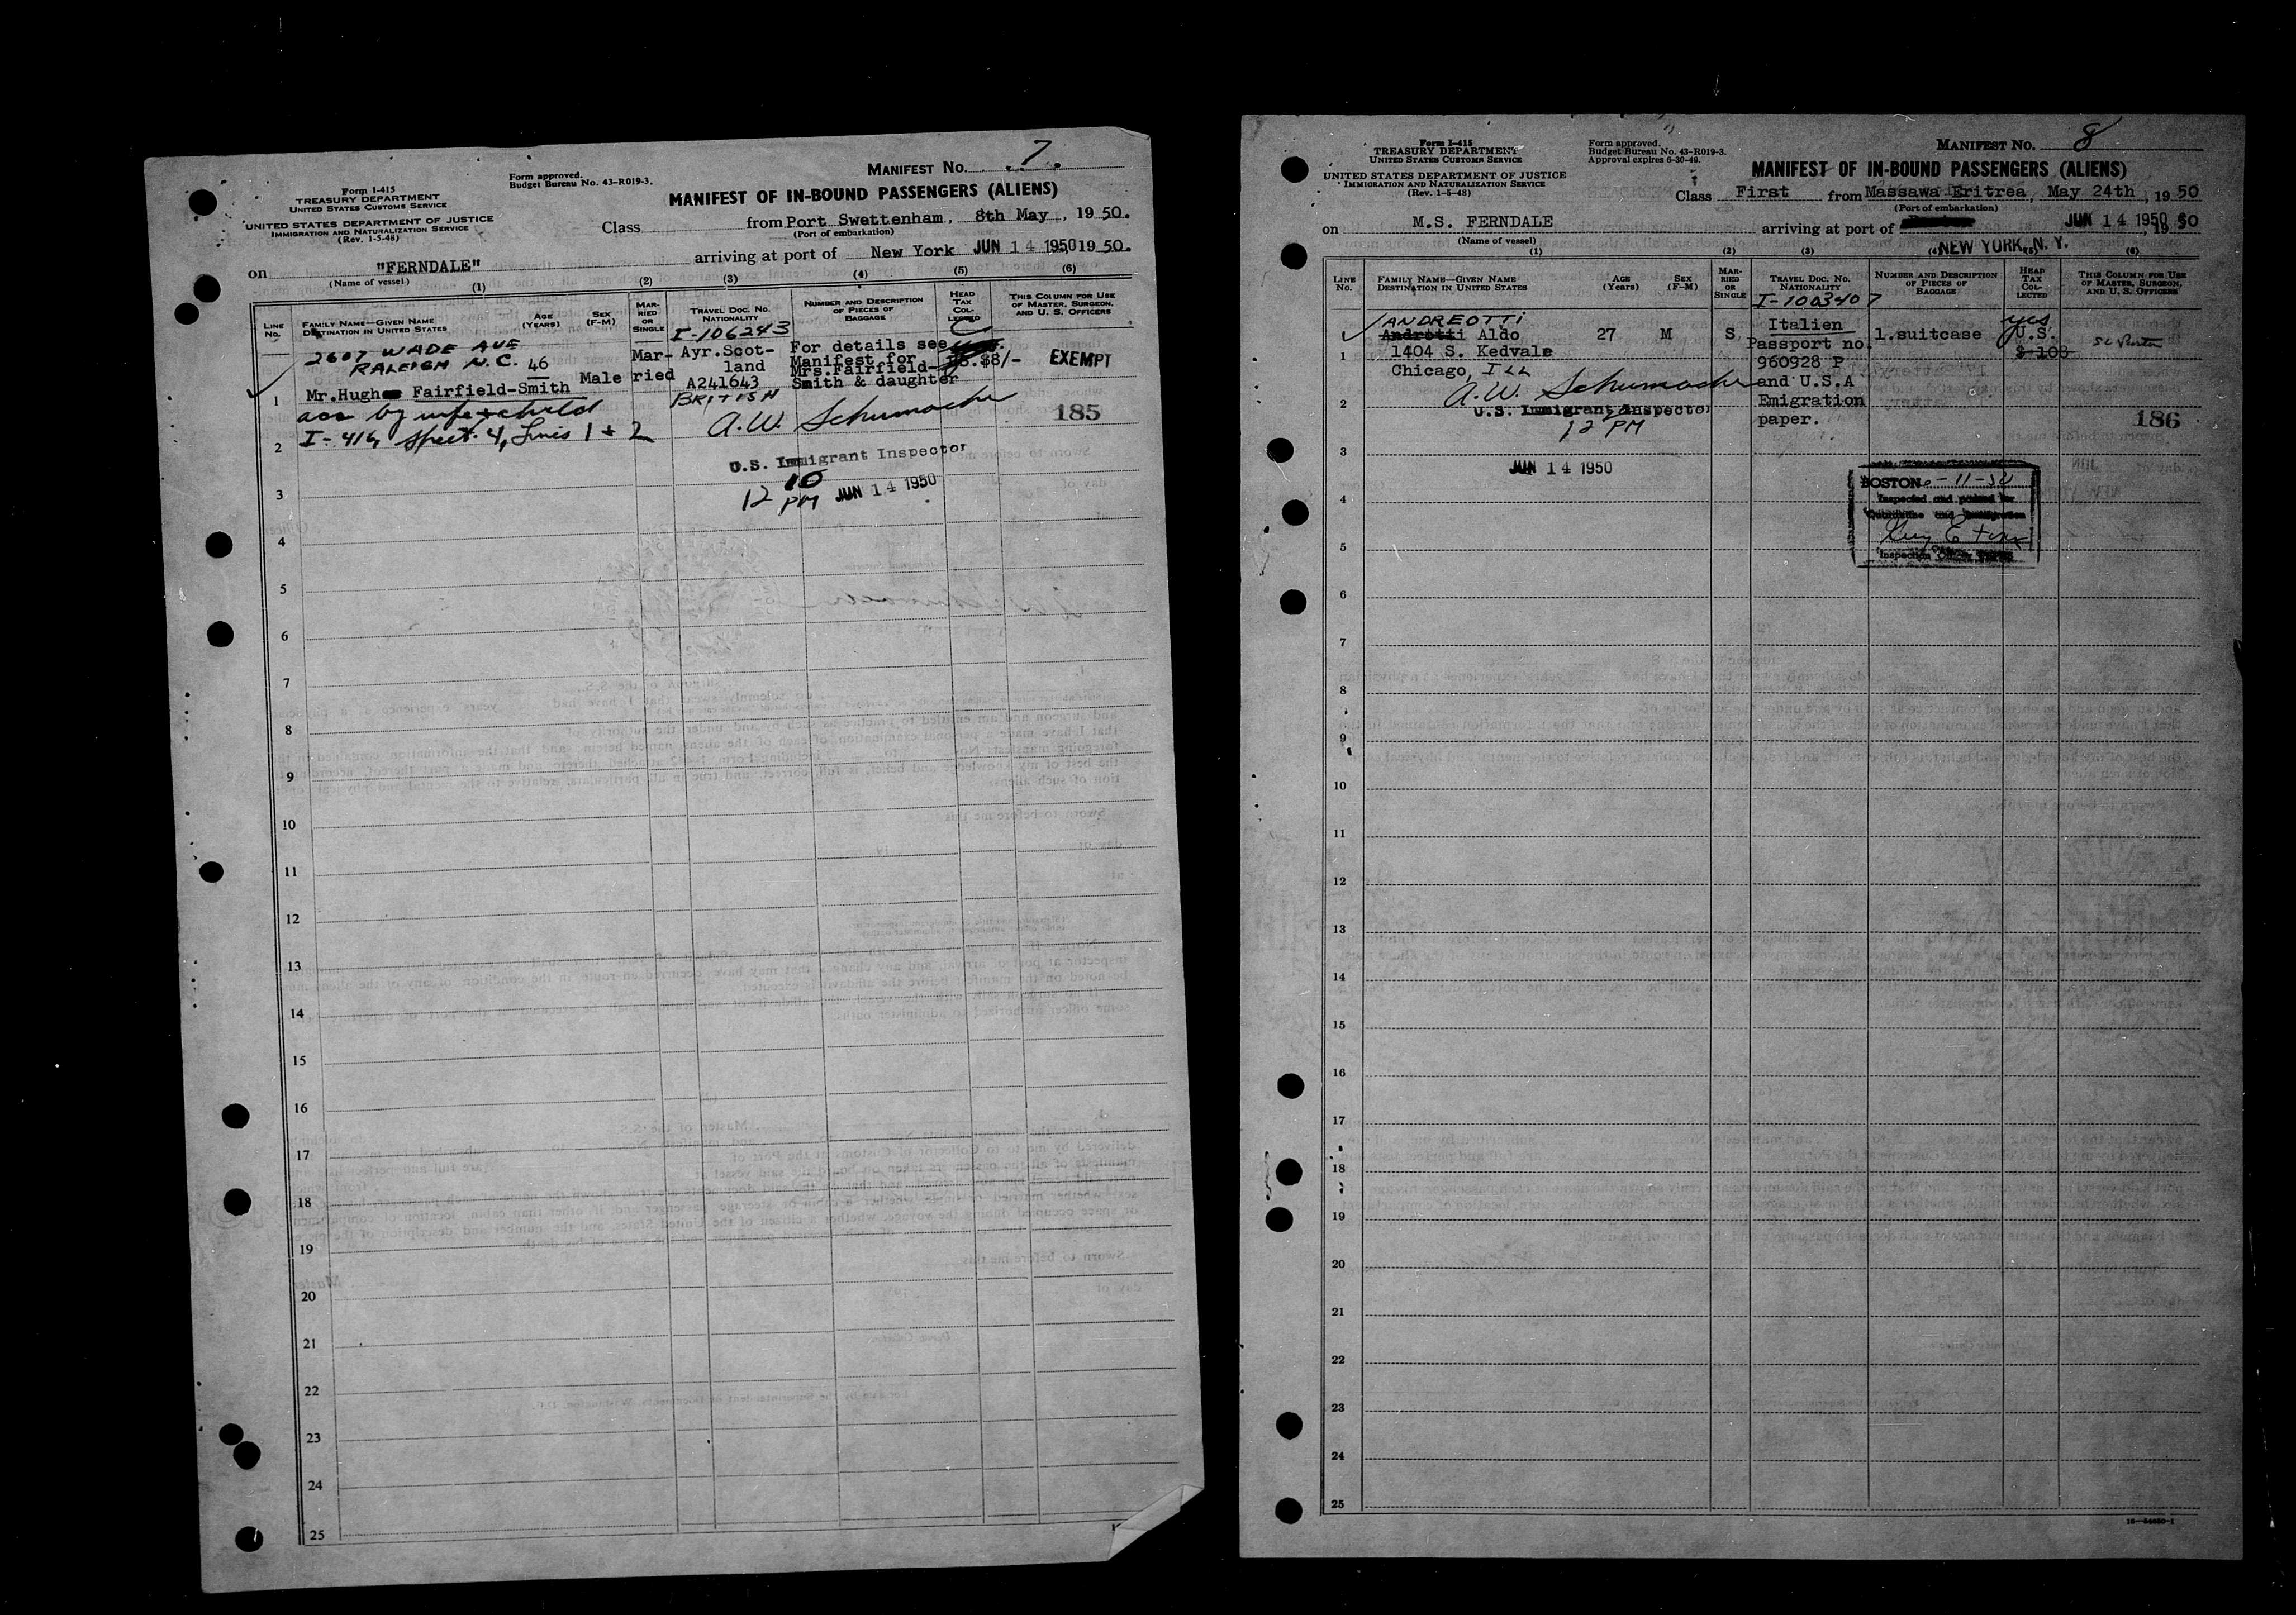 MANIFEST No. 7.
Form I-415
TREASURY DEPARTMENT
UNITED STATES CUSTOMS SERVICE
UNITED STATES DEPARTMENT OF JUSTICE
IMMIGRATION AND NATURALIZATION SERVICE
(Rev. 1-5-48)
Form approved.
Budget Bureau No. 43-R019-3.
MANIFEST OF IN-BOUND PASSENGERS (ALIENS)
Class from Port Swettenham, 8th May, 1950.
(Port of embarkation)
on "FERNDALE" arriving at port of New York JUN 14 1950 1950.
(Name of vessel)
(1) (2) (3) (4) (5) (6)
LINE No.
FAMILY NAME—GIVEN NAME
DESTINATION IN UNITED STATES
AGE (YEARS)
SEX (F-M)
MARRIED OR SINGLE
TRAVEL DOC. NO.
NATIONALITY
NUMBER AND DESCRIPTION OF PIECES OF BAGGAGE
HEAD TAX COLLECTED
THIS COLUMN FOR USE OF MASTER, SURGEON, AND U. S. OFFICERS
I-106243
2607 WADE AVE
RALEIGH N.C. 46
1 Mr.Hugh Fairfield-Smith Male Mar-ried
Ayr.Scot-
land
A241643
BRITISH
For details see
Manifest for
Mrs.Fairfield-
Smith & daughter
$8/-
EXEMPT
acc by wife + child
I-416, Sheet 4, Lines 1 + 2
A.W. Schumacher
185
U.S. Immigrant Inspector
10
12 PM JUN 14 1950
2
3
4
5
6
7
8
9
10
11
12
13
14
15
16
17
18
19
20
21
22
23
24
25
MANIFEST No. 8
Form I-415
TREASURY DEPARTMENT
UNITED STATES CUSTOMS SERVICE
UNITED STATES DEPARTMENT OF JUSTICE
IMMIGRATION AND NATURALIZATION SERVICE
(Rev. 1-5-48)
Form approved.
Budget Bureau No. 43-R019-3.
Approval expires 6-30-49.
MANIFEST OF IN-BOUND PASSENGERS (ALIENS)
Class First from Massawa Eritrea, May 24th, 1950
(Port of embarkation)
on M.S. FERNDALE arriving at port of JUN 14 1950, 1950
(Name of vessel)
NEW YORK, N. Y.
(1) (2) (3) (4) (5) (6)
LINE No.
FAMILY NAME—GIVEN NAME
DESTINATION IN UNITED STATES
AGE (Years)
SEX (F-M)
MARRIED OR SINGLE
TRAVEL DOC. NO.
NATIONALITY
NUMBER AND DESCRIPTION OF PIECES OF BAGGAGE
HEAD TAX COLLECTED
THIS COLUMN FOR USE OF MASTER, SURGEON, AND U. S. OFFICERS
I-1003407
ANDREOTTI
1 Androtti Aldo 27 M S
1404 S. Kedvale
Chicago, ILL
Italien
Passport no.
960928 P
and U.S.A
Emigration
paper.
1.suitcase
yes
U.S.
A.W. Schumacher
U.S. Immigrant Inspector
12 PM
186
JUN 14 1950
BOSTON
Inspected and passed for
Quarantine and Immigration
2
3
4
5
6
7
8
9
10
11
12
13
14
15
16
17
18
19
20
21
22
23
24
25